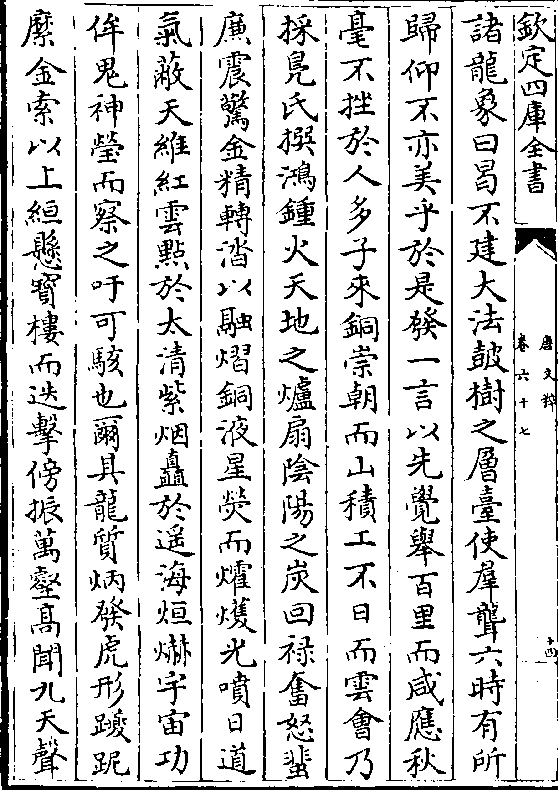 欽定四庫全書
唐文粹
卷六十七
十四
諸龍象曰曷不建大法鼓樹之層臺使羣聾六時有所
歸仰不亦美乎於是發一言以先覺舉百里而咸應秋
毫不挫於人多子來銅崇朝而山積工不日而雲會乃
採鳧氏撰鴻鍾火天地之爐扇陰陽之炭回禄奮怒蜚
廉震驚金精轉涾以融熠銅液星熒而爟㸌光噴日道
氣蔽天維紅雲㸃於太清紫烟矗於遥海烜爀宇宙功
侔鬼神瑩而察之吁可駭也爾其龍質炳發虎形躨跜
縻金索以上絙懸寳樓而迭擊傍振萬壑髙聞九天聲